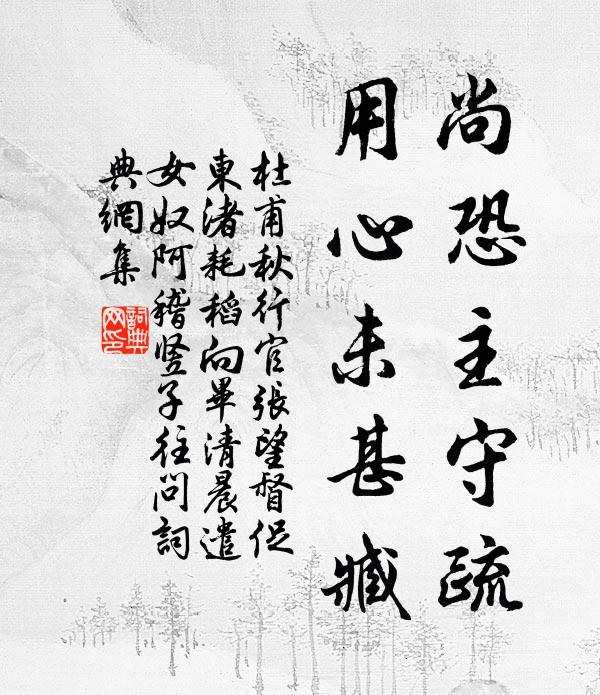 尚恐主守疏
用心未甚臧
杜甫秋行官張望督促
東渚耗稻向畢清晨遣
女奴阿稽豎子往問詞
典網集
詞典
网印